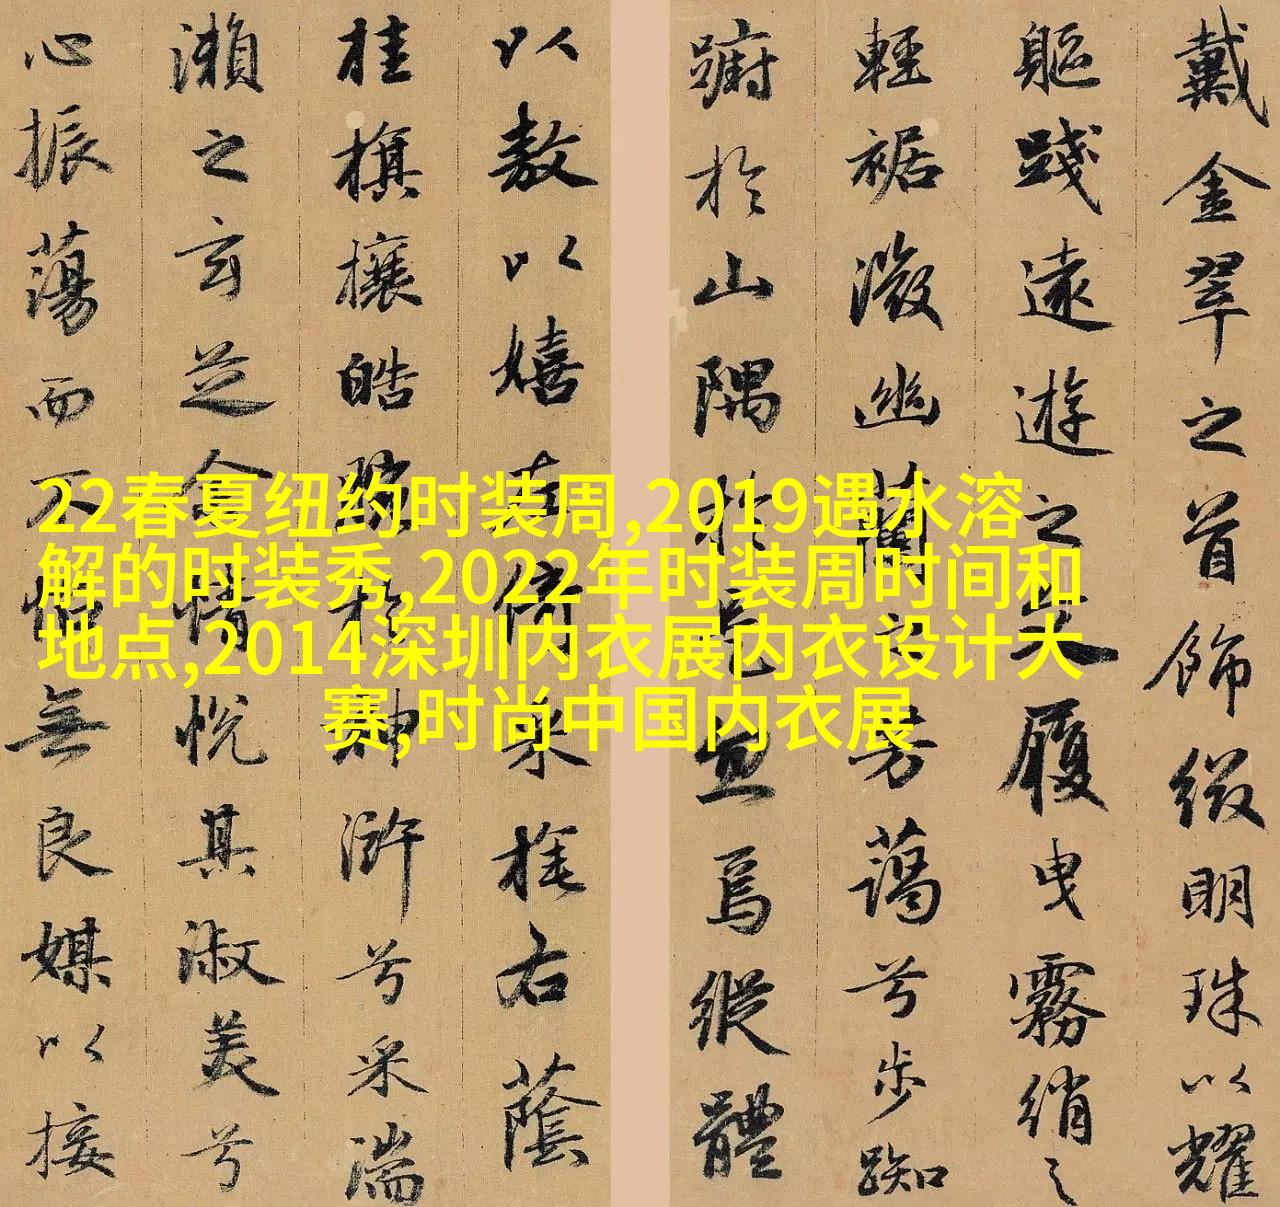 戴金翠之首飾綴明珠以耀
軀踐遠遊之文履曳霧綃之
輕裾微幽蘭之芳藹兮步踟
躕於山隅於是忽焉縱體
以敖以嬉左倚采旄右蔭
桂旗攘皓腕於神滸兮采湍
瀨之玄芝余情悅其淑美兮
心振蕩而不怡無良媒以接
22春夏纽约时装周,2019遇水溶
解的时装秀,2022年时装周时间和
地点,2014深圳内衣展内衣设计大
赛,时尚中国内衣展